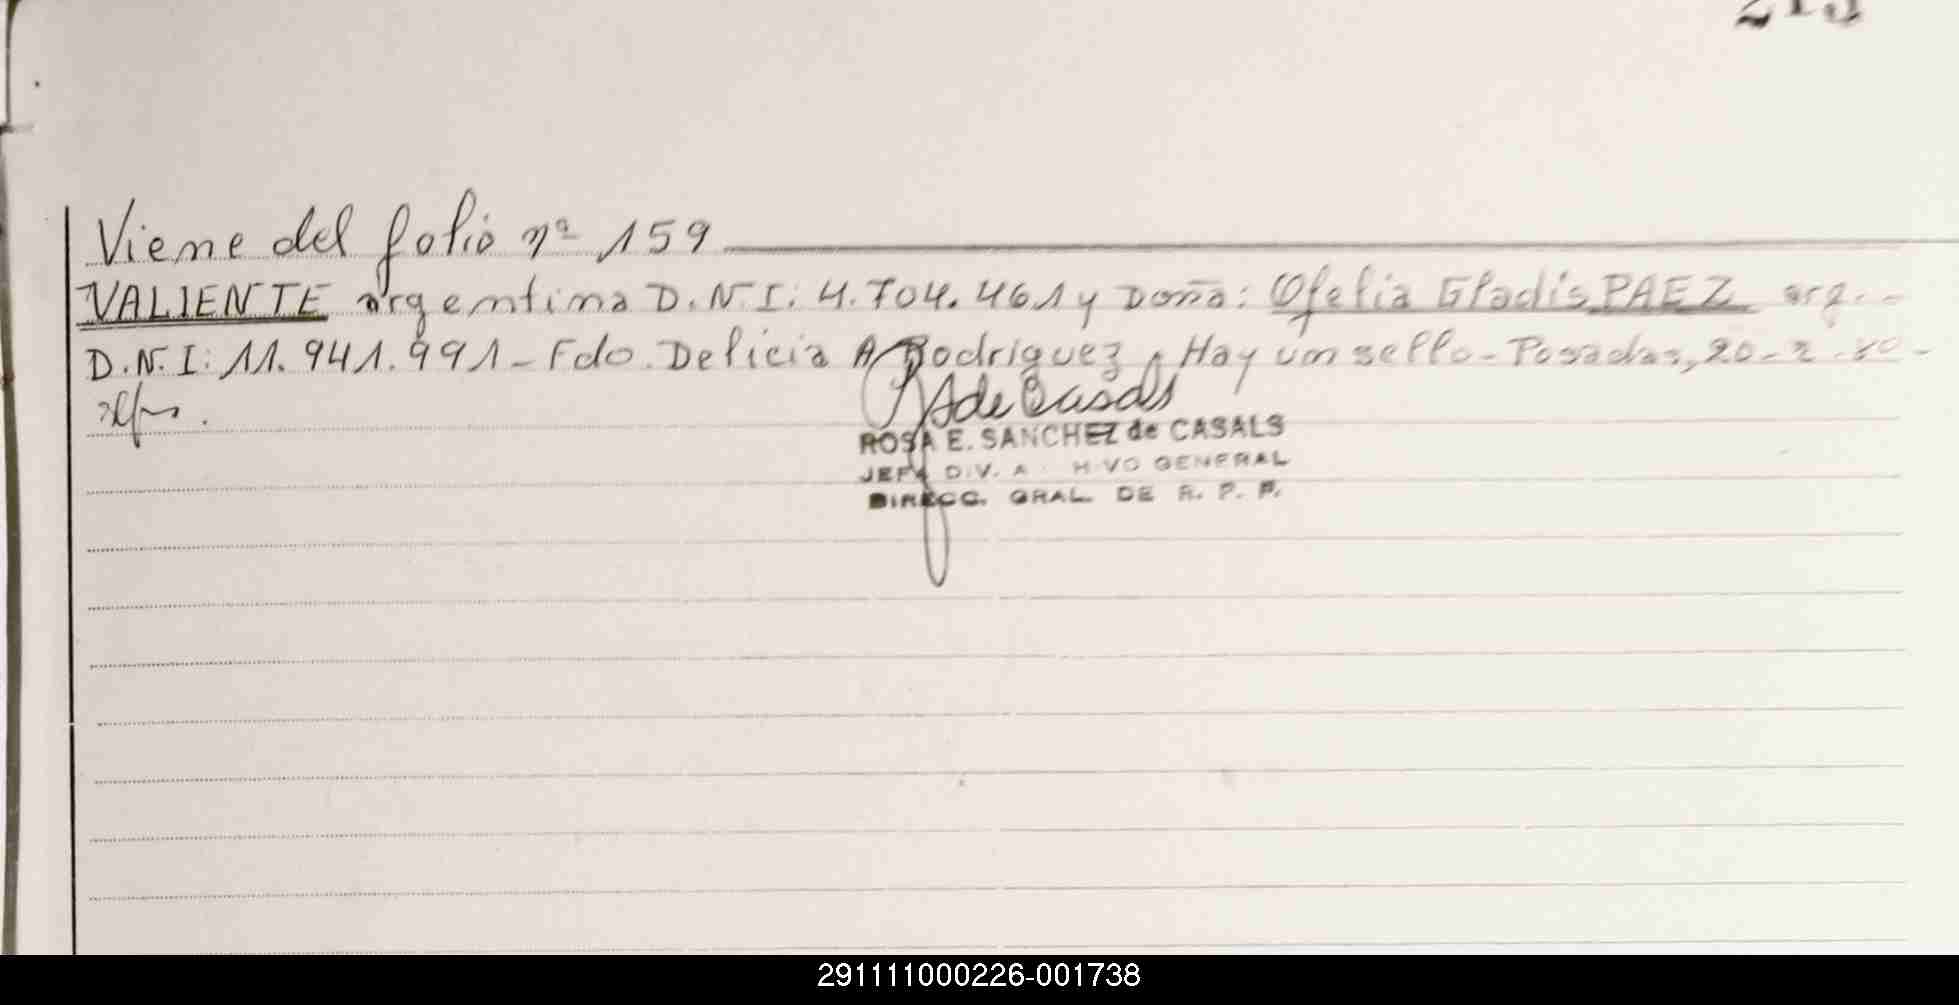 Viene del folio nº 159
VALIENTE argentina D.N.I: 4.704.461 y Doña: Ofelia Gladis PAEZ arg.-
D.N.I: 11.941.991 - Fdo. Delicia A Rodriguez. Hay un sello - Posadas, 20-2-80-
de Casals
ROSA E. SANCHEZ de CASALS
JEFA DIV. A HIVO GENERAL
DIRECC. GRAL. DE R. P. P.
291111000226-001738